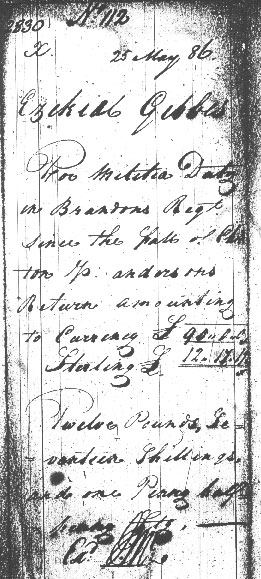 No. 112
2830
X.
25 May 86.
Ezekiel Gibbes
For Militia Duty
in Brandons Regt
since the fall of Chs
ton P. andersons
Return amounting
to Currency £ 90..
Sterling £ 12.17.1½
Twelve Pounds, Se-
-vanteen Shillings
and one Penny half
penny Stg.
Ex.d